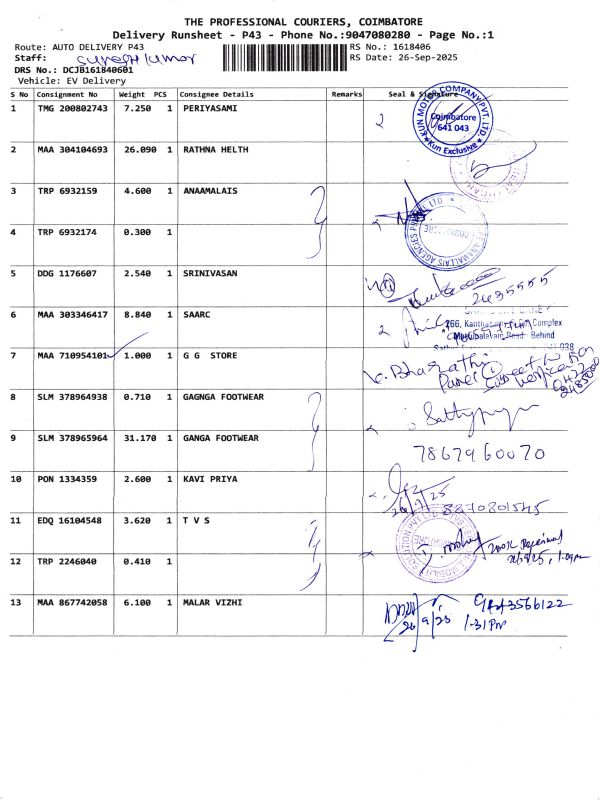 THE PROFESSIONAL COURIERS, COIMBATORE
Delivery Runsheet - P43 - Phone No.:9047080280 - Page No.:1
Route: AUTO DELIVERY P43 RS No.: 1618406
Staff: Suresh Kumar RS Date: 26-Sep-2025
DRS No.: DCJB161840601
Vehicle: EV Delivery
S No Consignment No Weight PCS Consignee Details Remarks Seal & Signature
1 TMG 200802743 7.250 1 PERIYASAMI
KUN MOTOR COMPANY PVT. LTD.
Coimbatore
641 043
Kun Exclusive
2 MAA 304104693 26.090 1 RATHNA HELTH
3 TRP 6932159 4.600 1 ANAAMALAIS
4 TRP 6932174 0.300 1
5 DDG 1176607 2.540 1 SRINIVASAN
2435555
6 MAA 303346417 8.840 1 SAARC
Complex
Behind
7 MAA 710954101 1.000 1 G G STORE
Bharathi
8 SLM 378964938 0.710 1 GAGNGA FOOTWEAR
9 SLM 378965964 31.170 1 GANGA FOOTWEAR
7867960070
10 PON 1334359 2.600 1 KAVI PRIYA
26/9/25 8870801545
11 EDQ 16104548 3.620 1 T V S
12 TRP 2246040 0.410 1
13 MAA 867742058 6.100 1 MALAR VIZHI
26/9/25 1.31 Pm